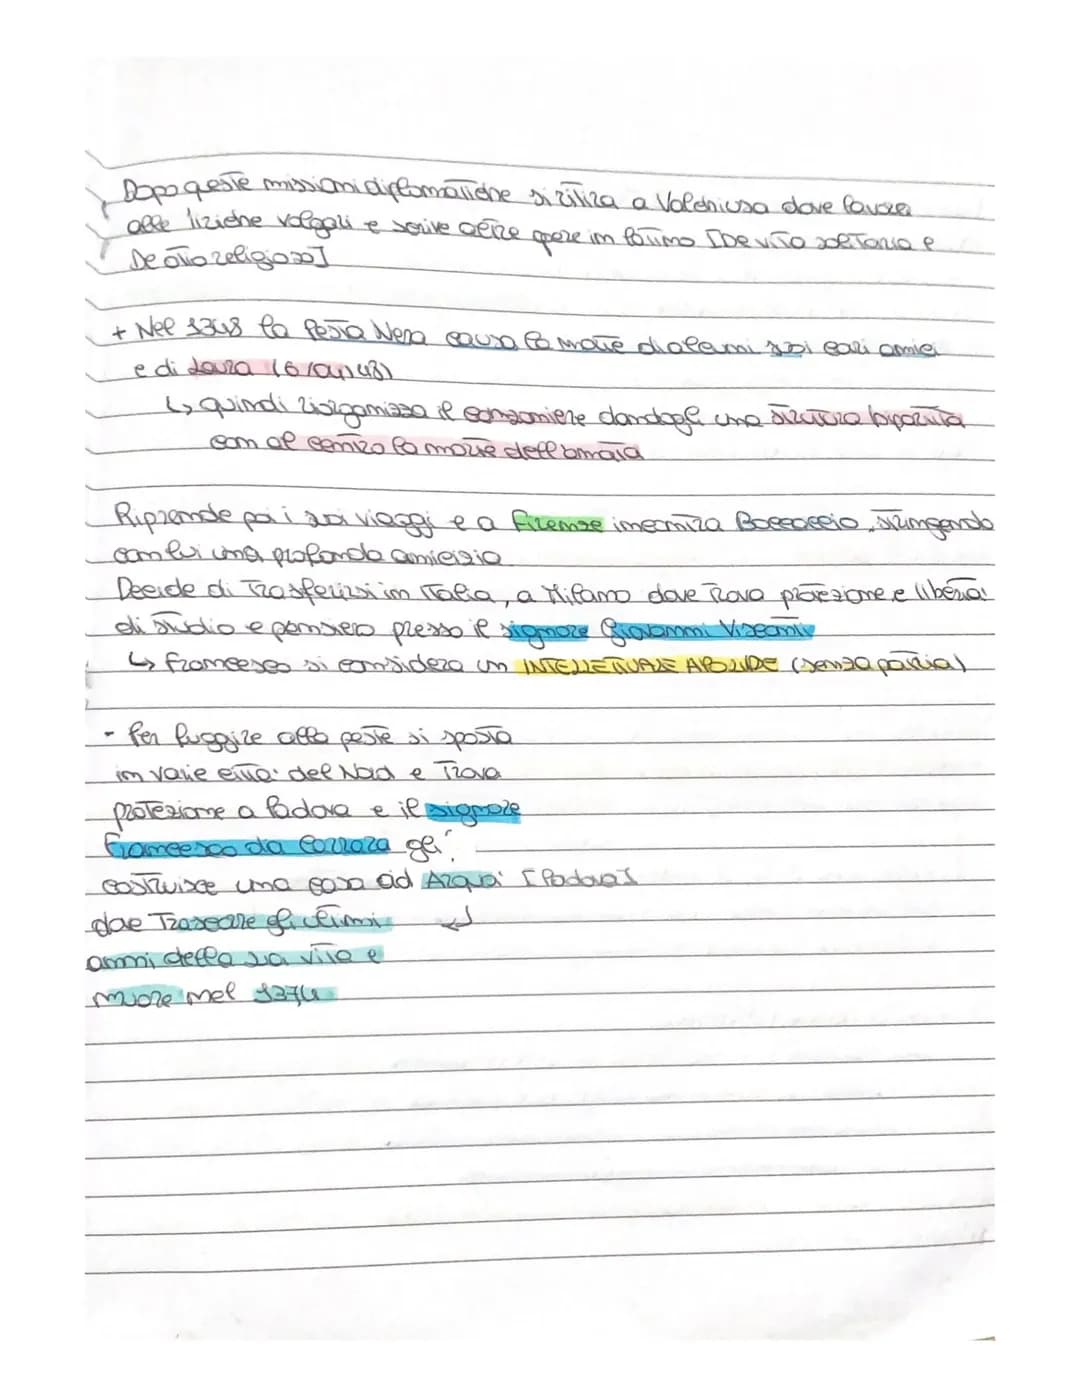 Dopo queste missioni diplomatiche si ritira a Valchiusa dove lavora
alle liriche volgari e scrive altre opere in latino [De vita solitaria e
De otio religioso]
+ Nel 1348 la Peste Nera causa la morte di alcuni suoi cari amici
e di Laura (6/04/48)
↳ quindi riorganizza il canzoniere dandogli una struttura bipartita
con al centro la morte dell'amata
Riprende poi i suoi viaggi e a Firenze incontra Boccaccio, stringendo
con lui una profonda amicizia
Decide di trasferirsi in Italia, a Milano dove trova protezione e libertà
di studio e pensiero presso il signore Giovanni Visconti
↳ Francesco si considera un INTELLETTUALE APOLIDE (senza patria)
- Per fuggire alla peste si sposta
in varie città del Nord e trova
protezione a Padova e il signore
Francesco da Carrara gli
costruisce una casa ad Arquà [Padova]
dove trascorre gli ultimi
anni della sua vita e
muore nel 1374